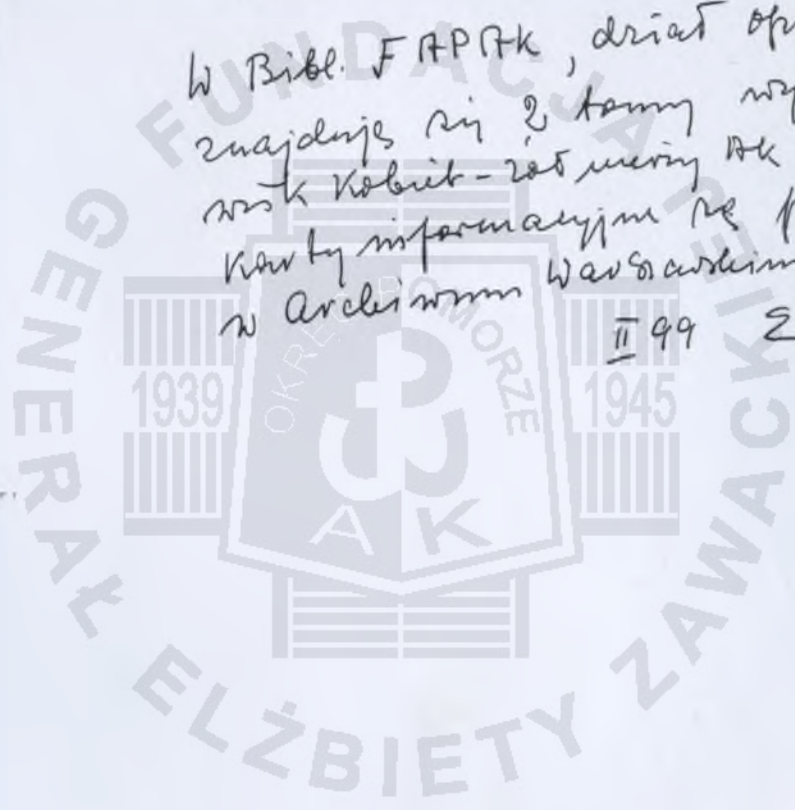 W Bibl. FAPAK, dział
znajdują się 2 tomy
wsk kobiet-żołnierzy AK
karty informacyjne są
w Archiwum Warszawskim
II 99
FUNDACJA GENERAŁ ELŻBIETY ZAWACKIEJ
OKRĘG POMORZE
1939 1945
AK